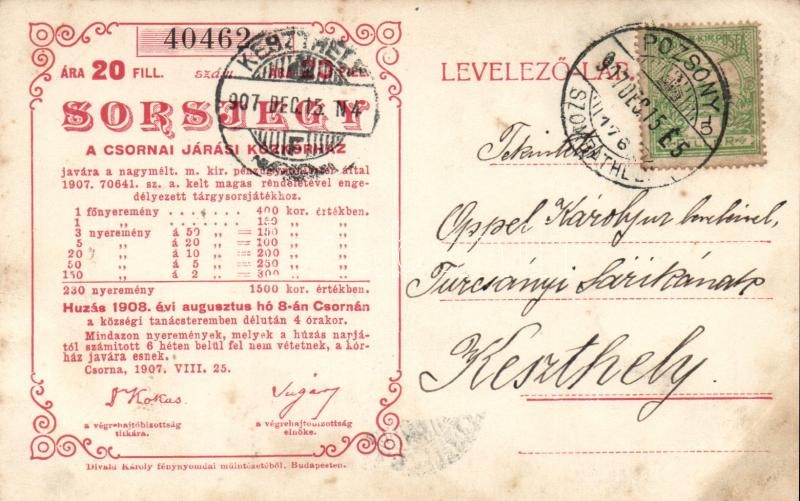 40462
ÁRA 20 FILL. szám. ÁRA 20 FILL.
SORSJEGY
A CSORNAI JÁRÁSI KÖZKÓRHÁZ
javára a nagymélt. m. kir. pénzügyminister által
1907. 70641. sz. a. kelt magas rendeletével enge-
délyezett tárgysorsjátékhoz.
1 főnyeremény . . . . . . . 400 kor. értékben.
1 „ . . . . . . . 150 „ „
3 nyeremény á 50 „ = 150 „ „
5 „ á 20 „ = 100 „ „
20 „ á 10 „ = 200 „ „
50 „ á 5 „ = 250 „ „
150 „ á 2 „ = 300 „ „
230 nyeremény 1500 kor. értékben.
Huzás 1908. évi augusztus hó 8-án Csornán
a községi tanácsteremben délután 4 órakor.
Mindazon nyeremények, melyek a húzás napjá-
tól számított 6 héten belül fel nem vétetnek, a kór-
ház javára esnek.
Csorna, 1907. VIII. 25.
Kokas
a végrehajtóbizottság
titkára.
a végrehajtóbizottság
elnöke.
Divald Károly fénynyomdai műintézetéből, Budapesten.
KESZTHELY
907 DEC. 15 N4
LEVELEZŐ-LAP.
POZSONY
907 DEC 15 E5
Oppel Károly ur levelével,
Turcsányi Sárikának
Keszthely.